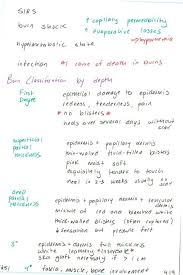 SIRS
burn shock ↑ capillary permeability
↑ evaporative losses
↳ hypovolemia
hypermetabolic state
infection * # cause of death in burns
Burn Classification by depth
First Degree
epithelial damage to epidermis
redness, tenderness, pain
* no blisters *
heals over several days without
superficial partial thickness
epidermis + papillary dermis
thin-walled fluid-filled blisters
pink moist soft
exquisitely tender to touch
heal in 2-3 weeks usually
deep partial thickness
epidermis + papillary dermis + reticular dermis
mixture of red and blanched white
thick-walled blisters (often ruptured)
↓ sensation but pressure felt
3° epidermis + dermis full thickness
white leathery
skin graft necessary if > 1 cm
4° fascia, muscle, bone involvement